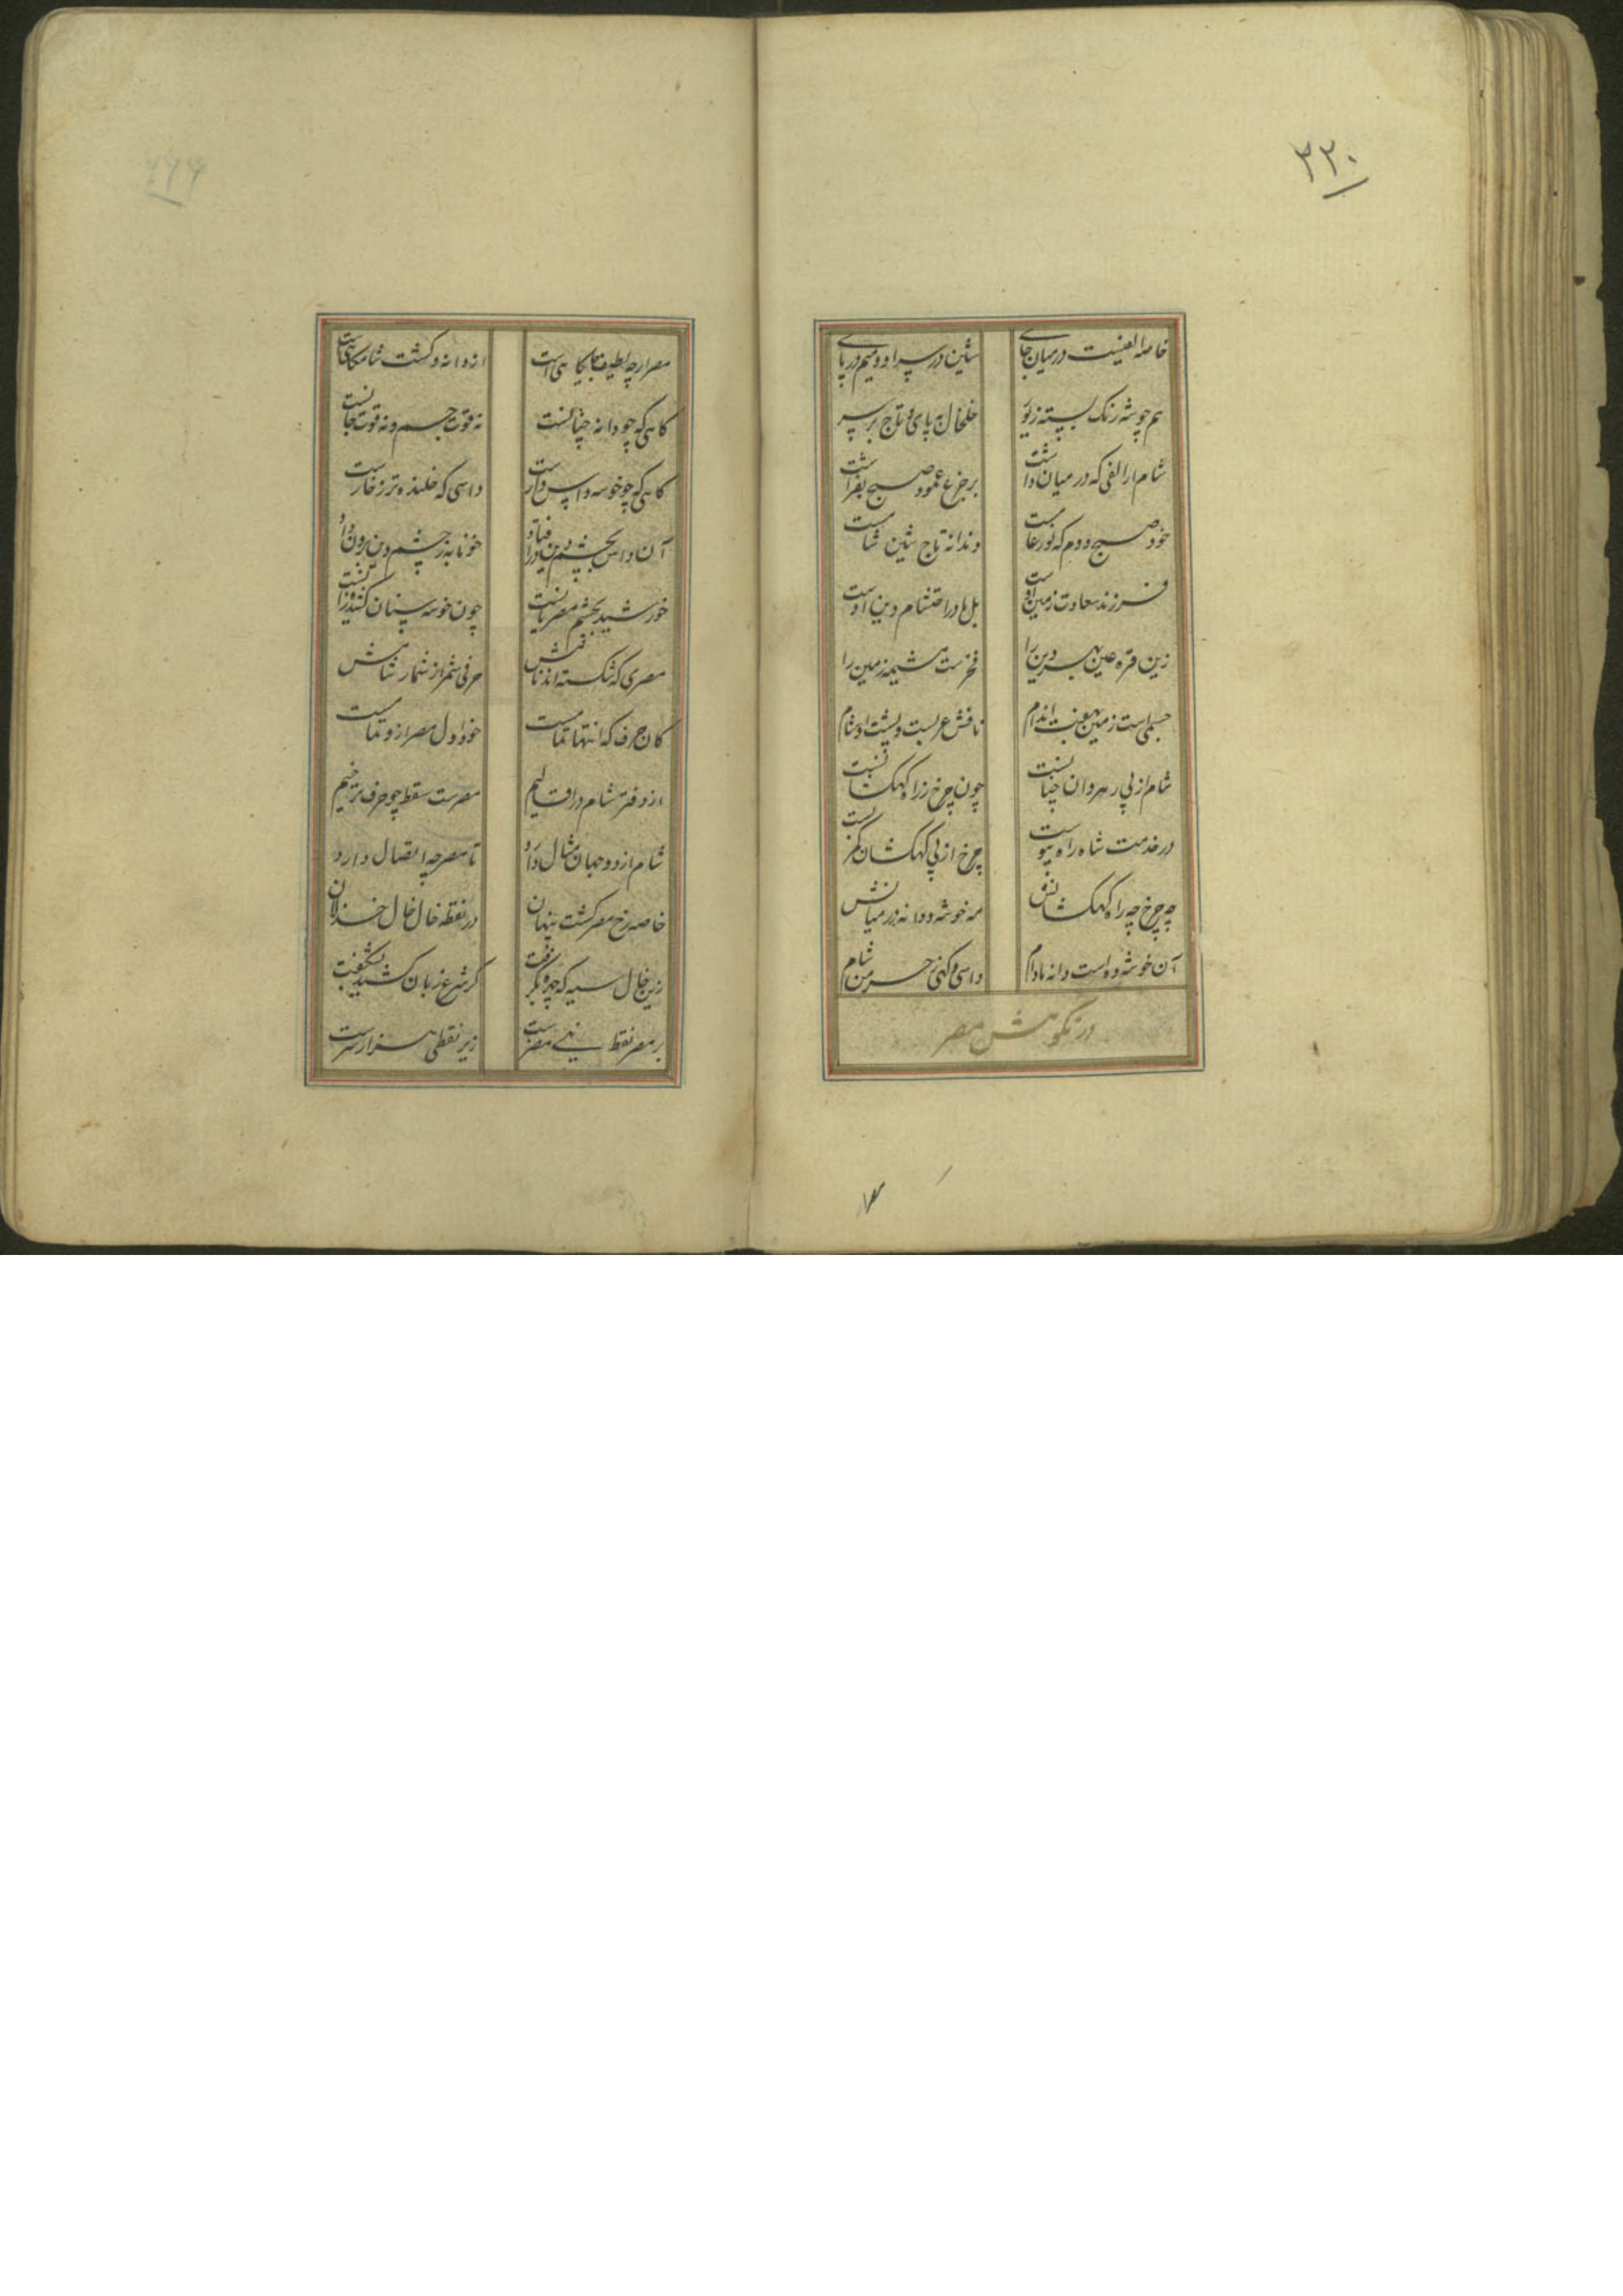 ۳۲۰
خاصه الفیست در میان جای شین در سر او و میم در پای
هم چو شه زنگ بسته زیور خلخال بپای و تاج بر سر
شام ار الفی که در میان داشت بر جزع عمود صبح بفراشت
خود صبح دوم که نور عامست دندانه تاج شین شامست
فرزند سعادت زمین اوست بل مادر احتشام دین اوست
زین قره عین بهر دین را فخرست مشیمه زمین را
جسمی است زمین بهفت اندام نافش عربست و پشت او شام
شام از پی رهروان چنانست چون چرخ ز راه کهکشانست
در خدمت شاه راه پیوست چرخ از پی کهکشان کمر بست
چه چرخ چه راه کهکشانش مه خوشه و دانه در میانش
آن خوشه دو است دانه مادام داسی و کهی ز خرمن شام
در نکوهش مصر
مصر ارچه لطیف جایگاهی است از دانه و کشت شام کاهی است
کاهی که چو دانه چنانست نه قوت جسم و نه قوت جانست
کاهی که چو خوشه داس دارست داسی که خلنده تر ز خارست
آن داس بچشم دین در افتاد خونابه ز چشم دین برون داد
خورشید بچشم مصریانست چون خوشه سنان کشنده زانست
مصری که شکسته اند نافش حرفی شمر از شمار شامش
کان حرف که انتها تمامست خود اول مصر ازو تمامست
از دفتر شام در اقالیم مصرست سقط چو حرف ترخیم
شام از دو جهان مثال دارد تا مصر چه اتصال دارد
خاصه رخ مصر گشت پنهان در نقطه خال خال خذلان
زین خال سیه که چهره بگرفت گر شرع زبان کشید نشگفت
بر مصر نقط نهی مضرست زیر نقطی هزار شرست